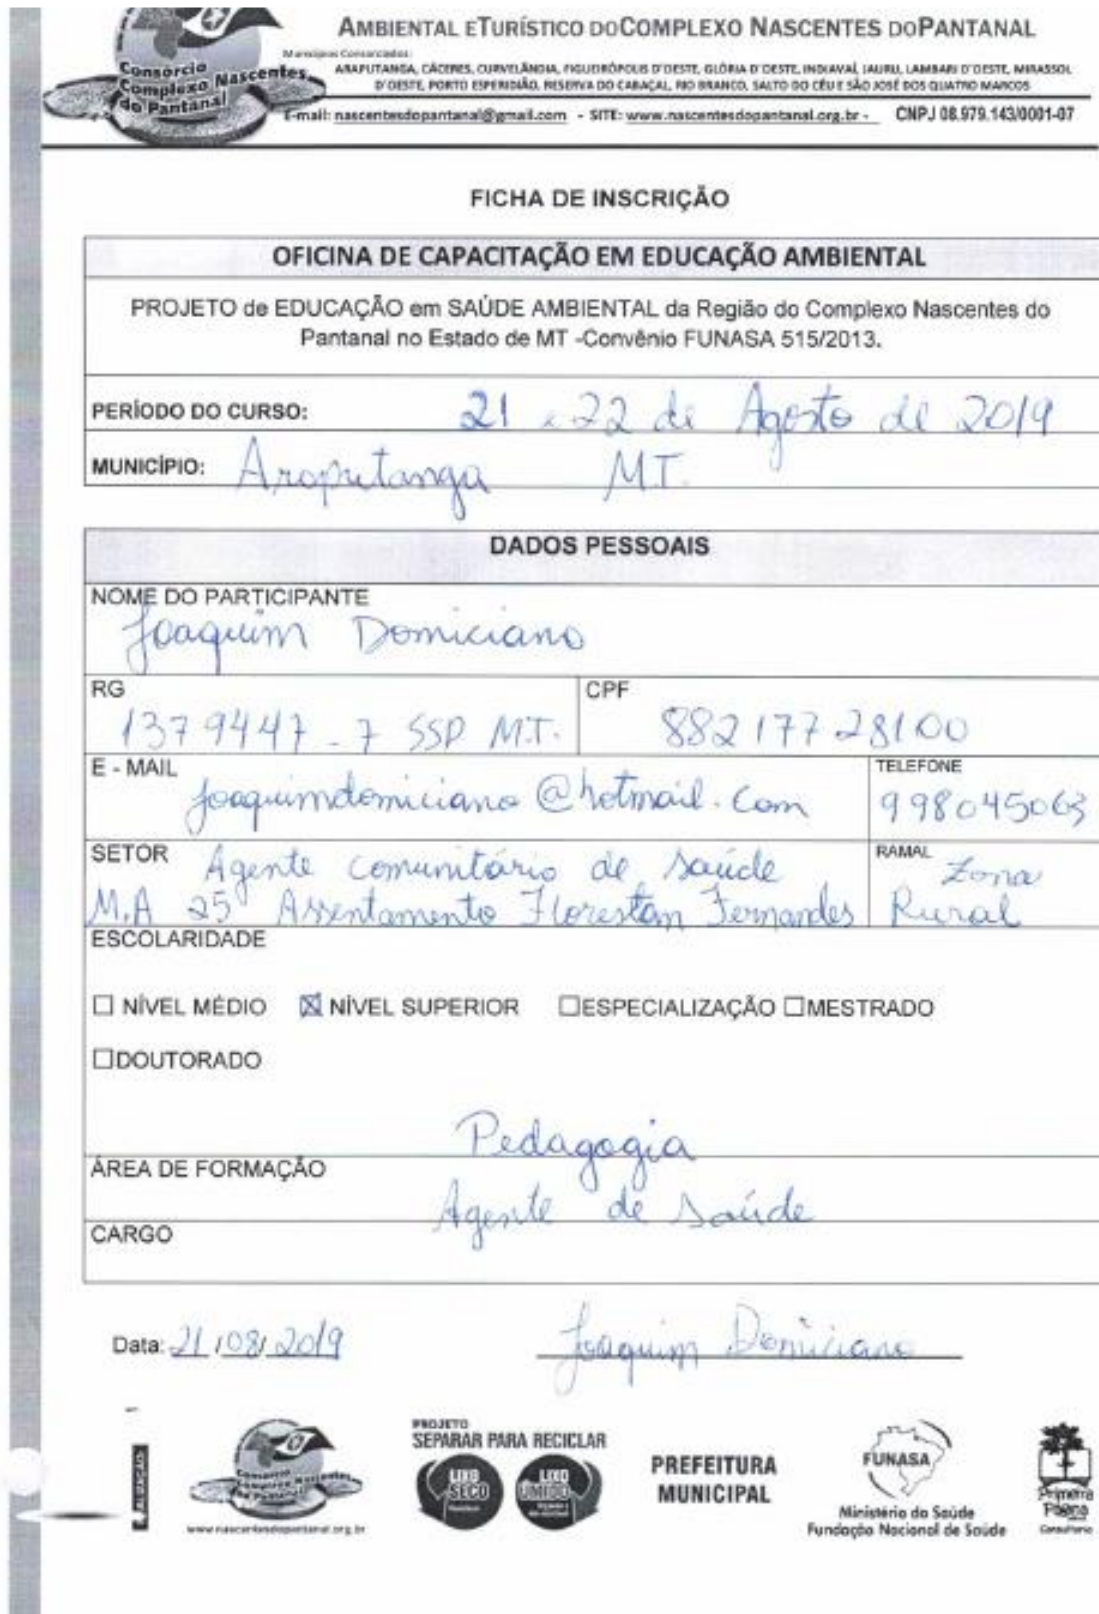 AMBIENTAL E TURÍSTICO DO COMPLEXO NASCENTES DO PANTANAL
Municípios Consorciados:
ARAPUTANGA, CÁCERES, CURVELÂNDIA, FIGUEIRÓPOLIS D'OESTE, GLÓRIA D'OESTE, INDIAVAÍ, JAURU, LAMBARI D'OESTE, MIRASSOL
D'OESTE, PORTO ESPERIDIÃO, RESERVA DO CABAÇAL, RIO BRANCO, SALTO DO CÉU E SÃO JOSÉ DOS QUATRO MARCOS
E-mail: nascentesdopantanal@gmail.com - SITE: www.nascentesdopantanal.org.br - CNPJ 08.979.143/0001-07
Consórcio
Complexo Nascentes
do Pantanal
FICHA DE INSCRIÇÃO
OFICINA DE CAPACITAÇÃO EM EDUCAÇÃO AMBIENTAL
PROJETO de EDUCAÇÃO em SAÚDE AMBIENTAL da Região do Complexo Nascentes do
Pantanal no Estado de MT -Convênio FUNASA 515/2013.
PERÍODO DO CURSO: 21 e 22 de Agosto de 2019
MUNICÍPIO: Araputanga MT.
DADOS PESSOAIS
NOME DO PARTICIPANTE
Joaquim Domiciano
RG CPF
1379447-7 SSP MT. 88217728100
E - MAIL TELEFONE
joaquimdomiciano@hotmail.com 998045063
SETOR Agente Comunitário de Saúde RAMAL Zona
M.A 25 Assentamento Florestan Fernandes Rural
ESCOLARIDADE
☐ NÍVEL MÉDIO ☒ NÍVEL SUPERIOR ☐ESPECIALIZAÇÃO ☐MESTRADO
☐DOUTORADO
Pedagogia
ÁREA DE FORMAÇÃO
Agente de Saúde
CARGO
Data: 21/08/2019 Joaquim Domiciano
Consórcio
Complexo Nascentes
do Pantanal
www.nascentesdopantanal.org.br
PROJETO
SEPARAR PARA RECICLAR
LIXO SECO
LIXO ÚMIDO
PREFEITURA
MUNICIPAL
FUNASA
Ministério da Saúde
Fundação Nacional de Saúde
Primeira
Página
Consultoria